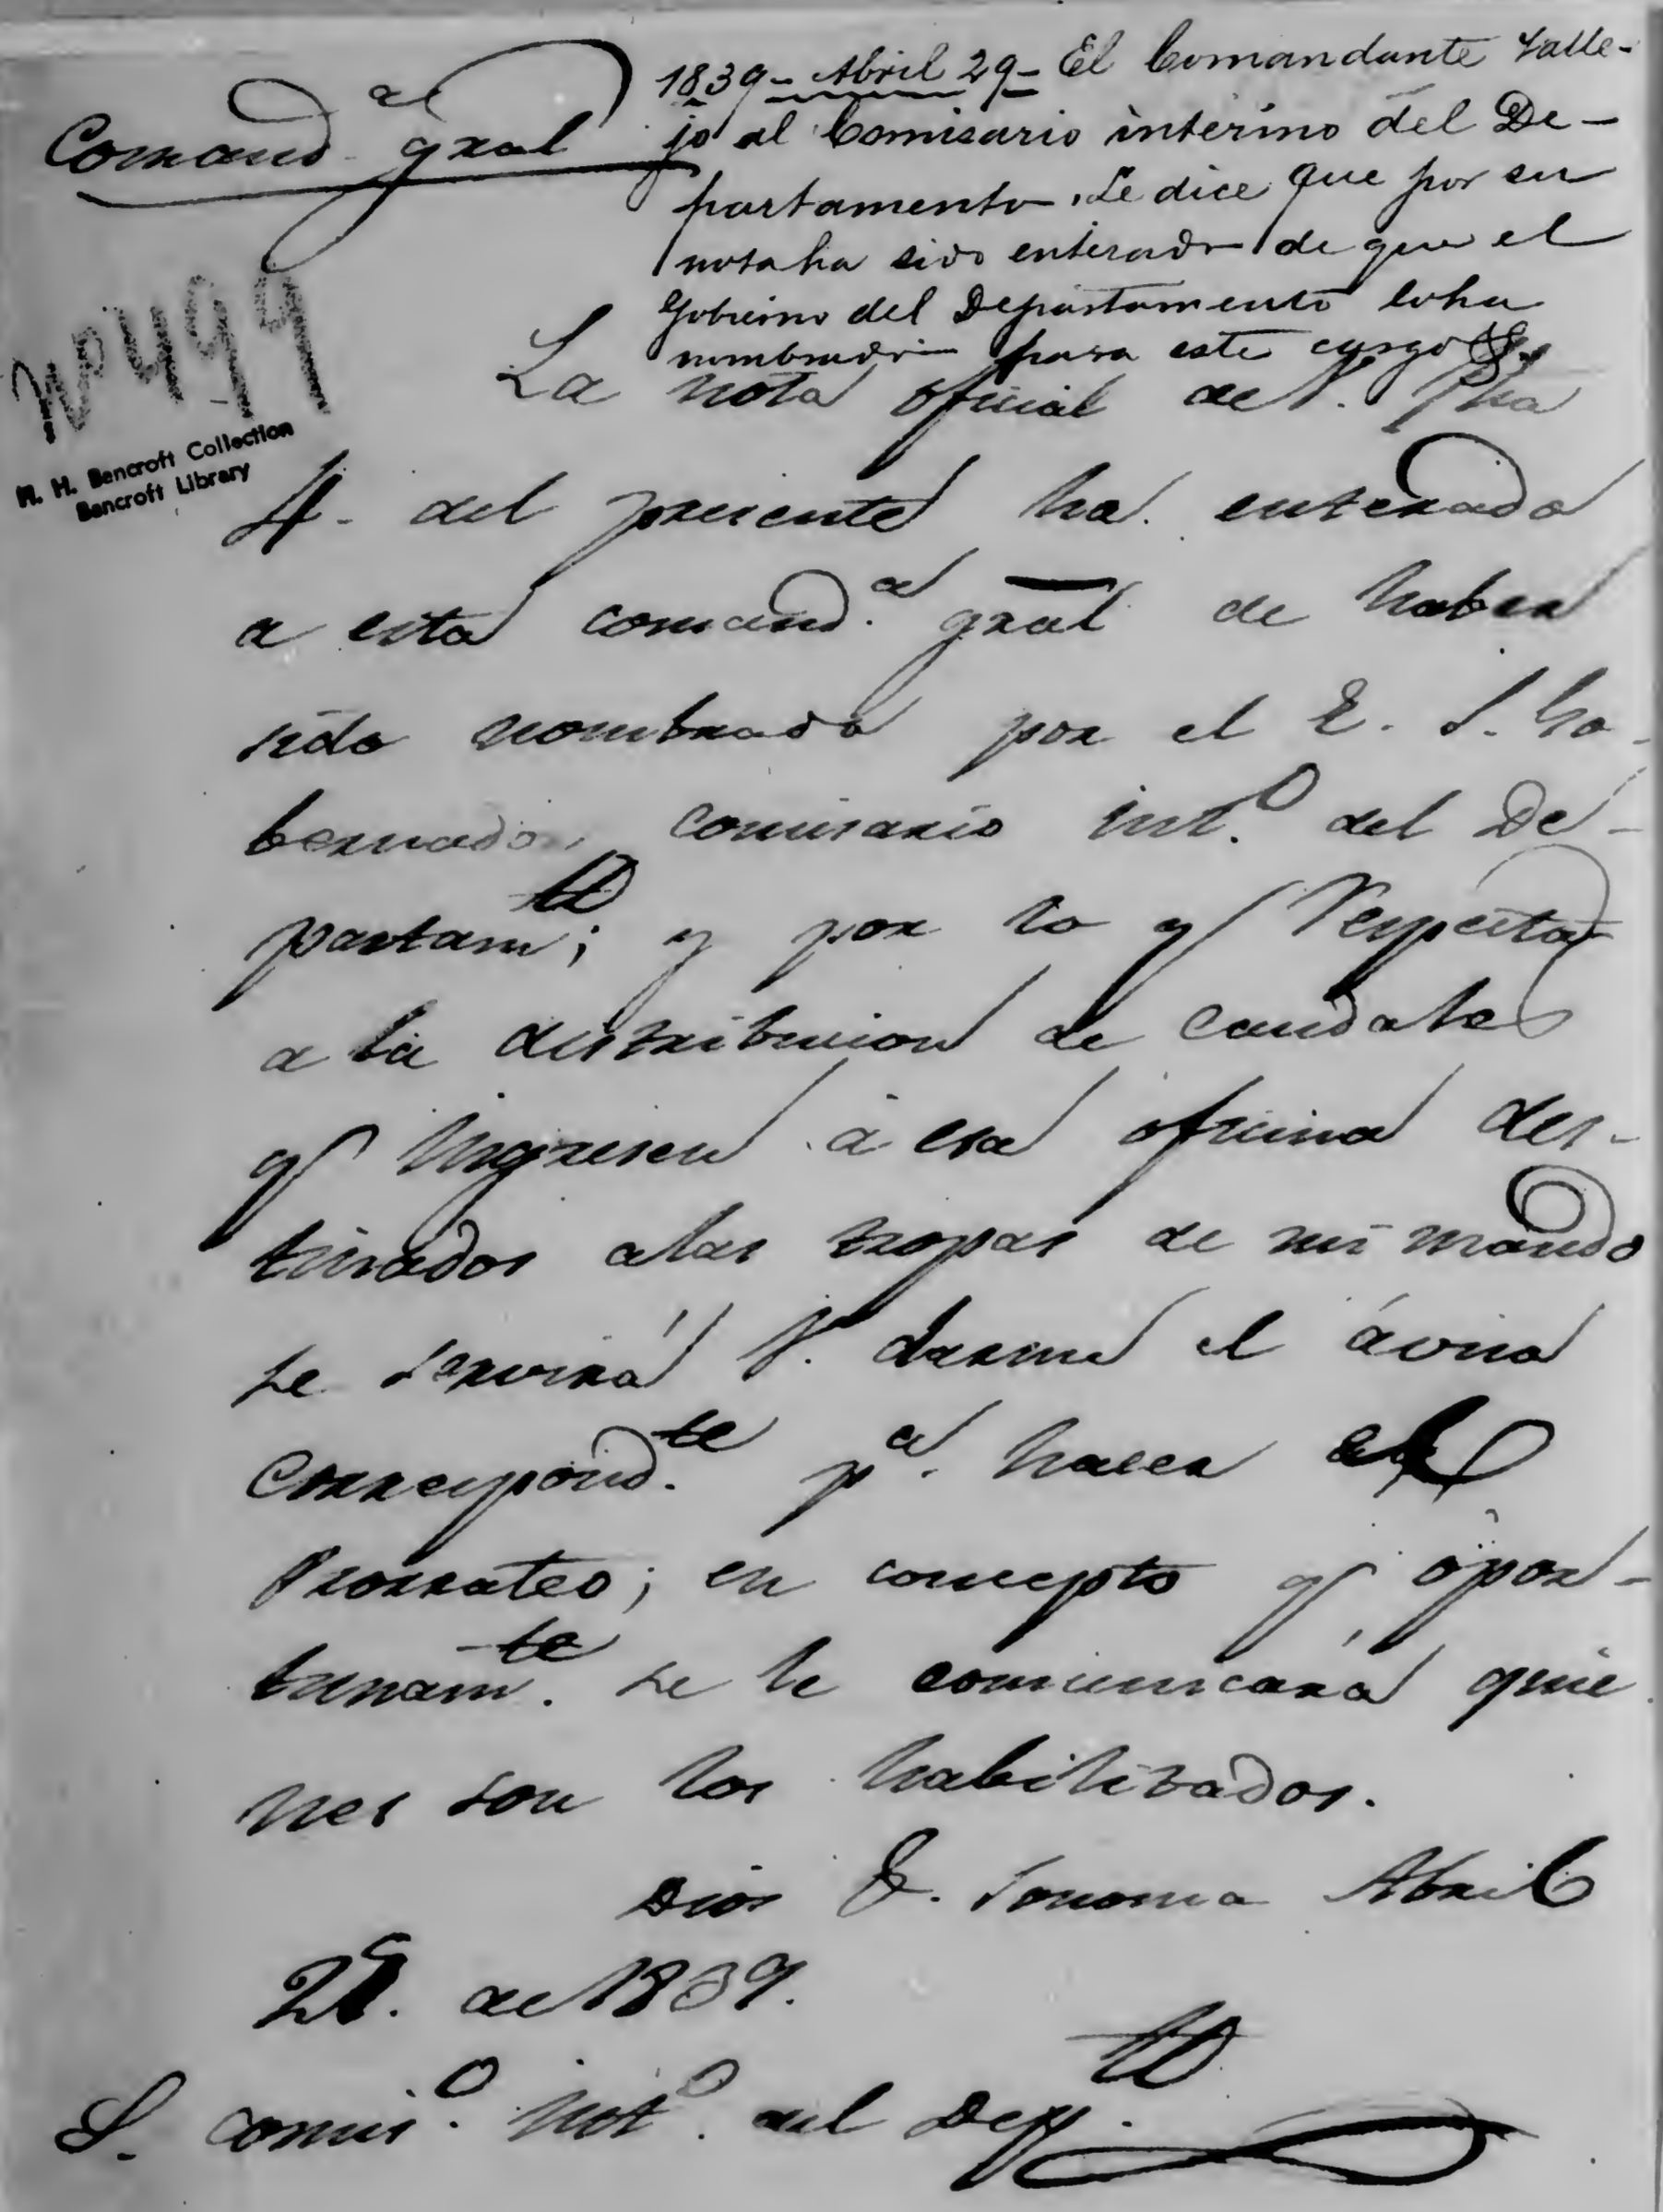 Comand.ª gral
1839 - Abril 29 - El Comandante Valle-
jo al Comisario interino del De-
partamento. Le dice que por su
nota ha sido enterado de que el
Gobierno del Departamento lo ha
nombrado para este cargo &.
Nº 499
H. H. Bancroft Collection
Bancroft Library
La nota oficial de V. fha
4. del presente ha enterado
a esta comand.ª gral de haber
sido nombrado por el E. S. Go-
bernador comisario int.º del De-
partam.to; y por lo q.e respecta
a la distribucion de caudales
q.e ingresen à esa oficina des-
tinados alas tropas de mi mando
se servirá V. darme el áviso
correspond.te p.ª hacer el
Prorrateo; en concepto q.e opor-
tunam.te se le comunicará quie
nes son los habilitados.
Dios &. Sonoma Abril
29. de 1839.
S. comis.º int.º del Dep.to